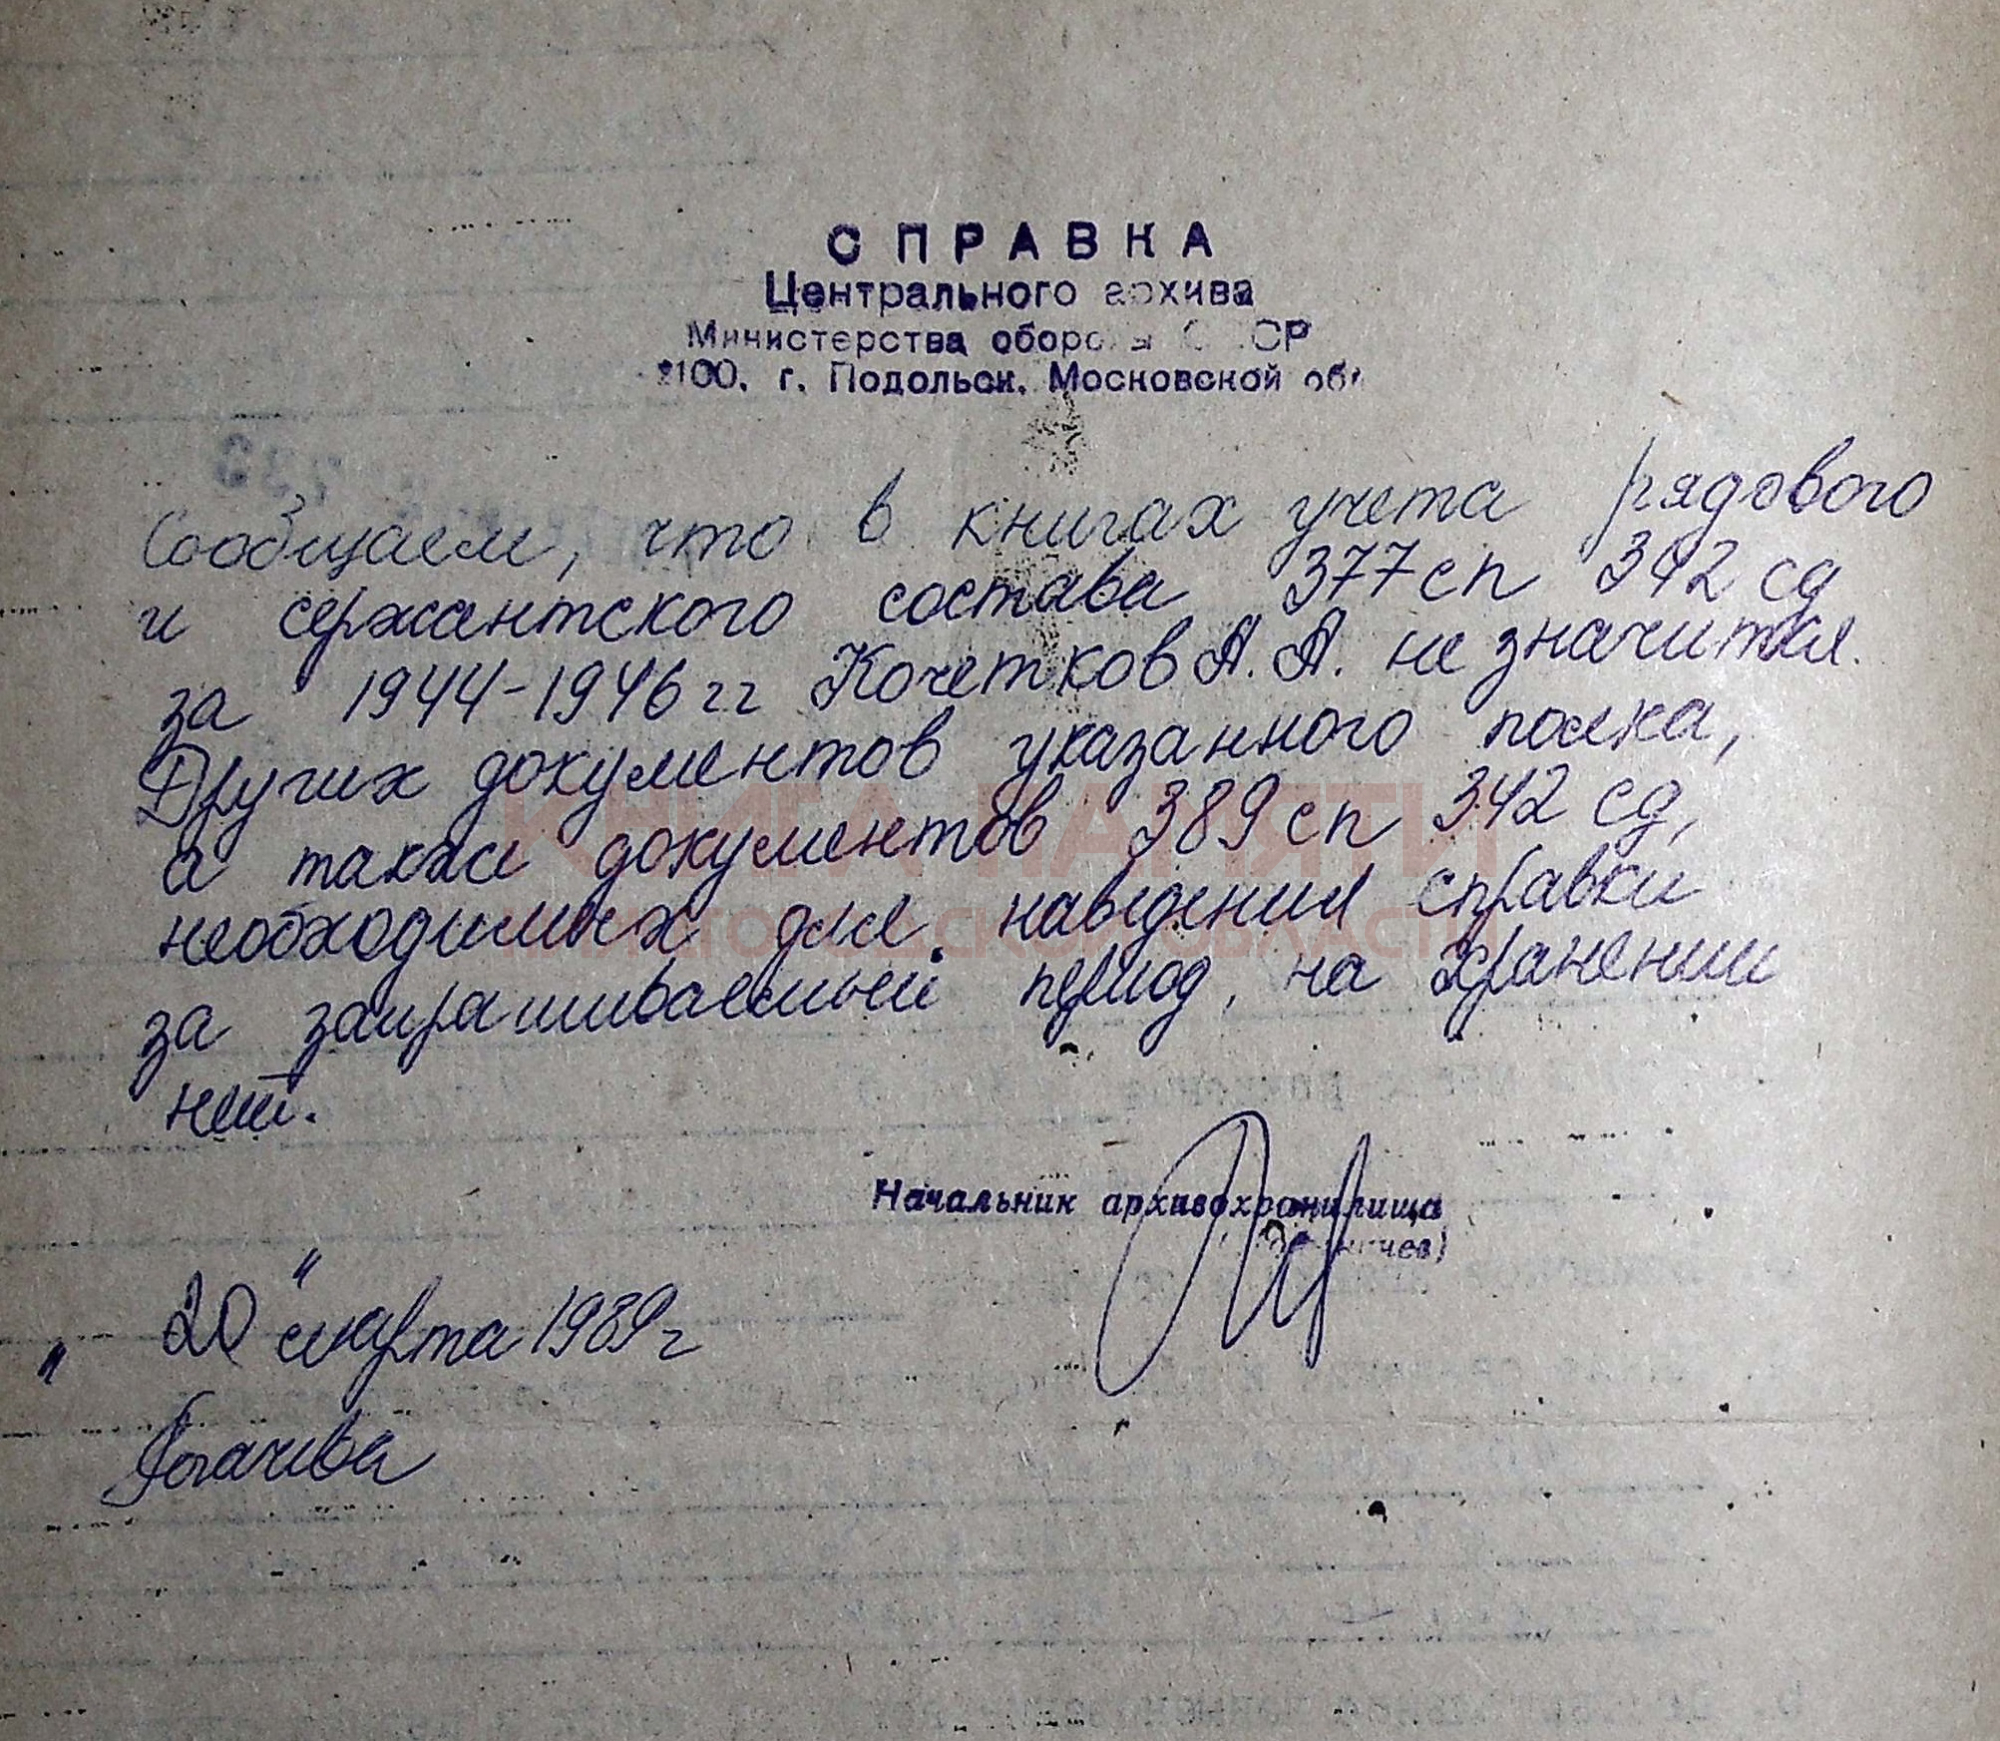 СПРАВКА
Центрального архива
Министерства обороны СССР
г. Подольск, Московской обл
Сообщаем, что в книгах учета рядового
и сержантского состава 377 сп 342 сд
за 1944-1946 гг Кочетков А. А. не значится.
Других документов указанного полка,
а также документов 389 сп 342 сд,
необходимых для наведения справки
за запрашиваемый период, на хранении
нет.
Начальник архивохранилища
"20" марта 1989 г
КНИГА ПАМЯТИ
НИЖЕГОРОДСКОЙ ОБЛАСТИ